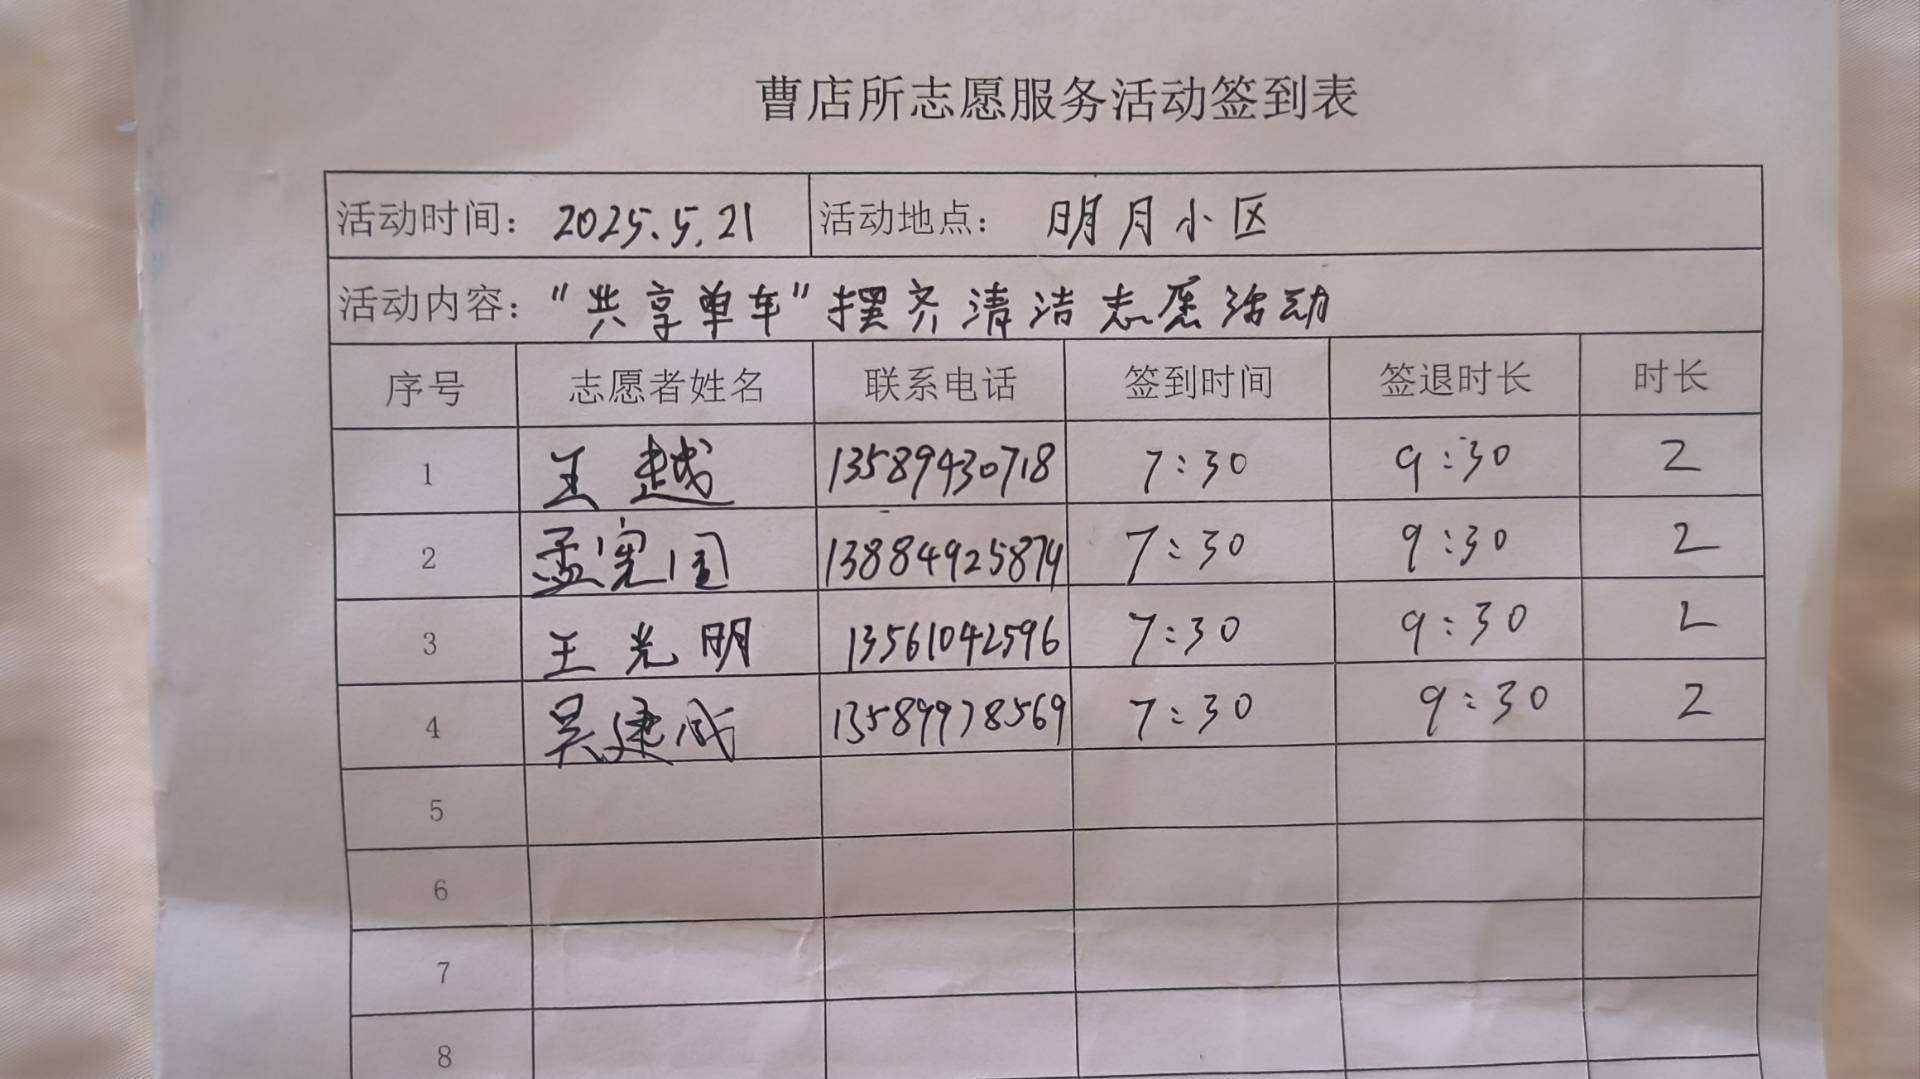 曹店所志愿服务活动签到表
活动时间：2025.5.21 活动地点：明月小区
活动内容："共享单车"摆齐清洁志愿活动
序号 志愿者姓名 联系电话 签到时间 签退时长 时长
1 王越 13589430718 7:30 9:30 2
2 孟宪国 13884925874 7:30 9:30 2
3 王光明 13561042596 7:30 9:30 2
4 吴建成 13589978569 7:30 9:30 2
5
6
7
8